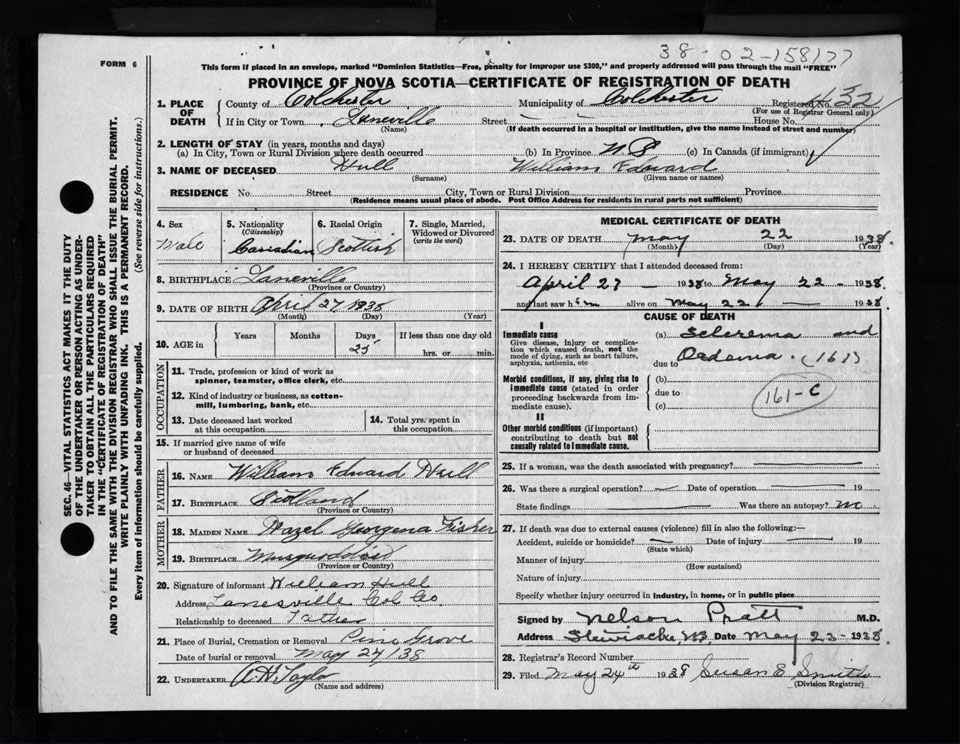 38-02-158177
FORM 6
This form if placed in an envelope, marked "Dominion Statistics—Free, penalty for improper use $300," and properly addressed will pass through the mail "FREE"
PROVINCE OF NOVA SCOTIA—CERTIFICATE OF REGISTRATION OF DEATH
1. PLACE OF DEATH County of Colchester Municipality of Colchester Registered No. 432
(For use of Registrar General only)
If in City or Town Laneville Street House No.
(Name) (If death occurred in a hospital or institution, give the name instead of street and number)
2. LENGTH OF STAY (in years, months and days)
(a) In City, Town or Rural Division where death occurred (b) In Province N.S (c) In Canada (if immigrant)
3. NAME OF DECEASED Hull William Edward
(Surname) (Given name or names)
RESIDENCE No. Street City, Town or Rural Division Province
(Residence means usual place of abode. Post Office Address for residents in rural parts not sufficient)
4. Sex Male
5. Nationality (Citizenship) Canadian
6. Racial Origin Scottish
7. Single, Married, Widowed or Divorced (write the word)
8. BIRTHPLACE Laneville
(Province or Country)
9. DATE OF BIRTH April 27 1938
(Month) (Day) (Year)
10. AGE in Years Months Days 25 If less than one day old hrs. or min.
OCCUPATION
11. Trade, profession or kind of work as spinner, teamster, office clerk, etc.
12. Kind of industry or business, as cotton-mill, lumbering, bank, etc.
13. Date deceased last worked at this occupation
14. Total yrs. spent in this occupation
15. If married give name of wife or husband of deceased
FATHER
16. NAME William Edward Hull
17. BIRTHPLACE Scotland
(Province or Country)
MOTHER
18. MAIDEN NAME Hazel Georgena Fisher
19. BIRTHPLACE Musquodoboit
(Province or Country)
20. Signature of informant William Hull
Address Lanesville Col Co.
Relationship to deceased Father
21. Place of Burial, Cremation or Removal Pine Grove
Date of burial or removal May 24/38
22. UNDERTAKER A. H. Taylor
(Name and address)
MEDICAL CERTIFICATE OF DEATH
23. DATE OF DEATH May 22 1938
(Month) (Day) (Year)
24. I HEREBY CERTIFY that I attended deceased from
April 27 — 1938 to May 22 — 1938
and last saw him alive on May 22 — 1938
CAUSE OF DEATH
I
Immediate cause
Give disease, injury or complication which caused death, not the mode of dying, such as heart failure, asphyxia, asthenia, etc
(a) Sclerema and
due to Oedema. (161)
Morbid conditions, if any, giving rise to immediate cause (stated in order proceeding backwards from immediate cause).
(b)
due to 161-C
(c)
II
Other morbid conditions (if important) contributing to death but not causally related to immediate cause.
25. If a woman, was the death associated with pregnancy?
26. Was there a surgical operation? — Date of operation — 19
State findings Was there an autopsy?
27. If death was due to external causes (violence) fill in also the following:—
Accident, suicide or homicide? Date of injury 19
(State which)
Manner of injury
(How sustained)
Nature of injury
Specify whether injury occurred in industry, in home, or in public place
Signed by Nelson Pratt M.D.
Address Stewiacke, NS Date May 23-1938
28. Registrar's Record Number
29. Filed May 24th 1938 Susan E Smith
(Division Registrar)
SEC. 46—VITAL STATISTICS ACT MAKES IT THE DUTY
OF THE UNDERTAKER OR PERSON ACTING AS UNDER-
TAKER TO OBTAIN ALL THE PARTICULARS REQUIRED
IN THE "CERTIFICATE OF REGISTRATION OF DEATH"
AND TO FILE THE SAME WITH THE DIVISION REGISTRAR WHO SHALL ISSUE THE BURIAL PERMIT.
WRITE PLAINLY WITH UNFADING INK. THIS IS A PERMANENT RECORD.
Every item of information should be carefully supplied. (See reverse side for instructions.)